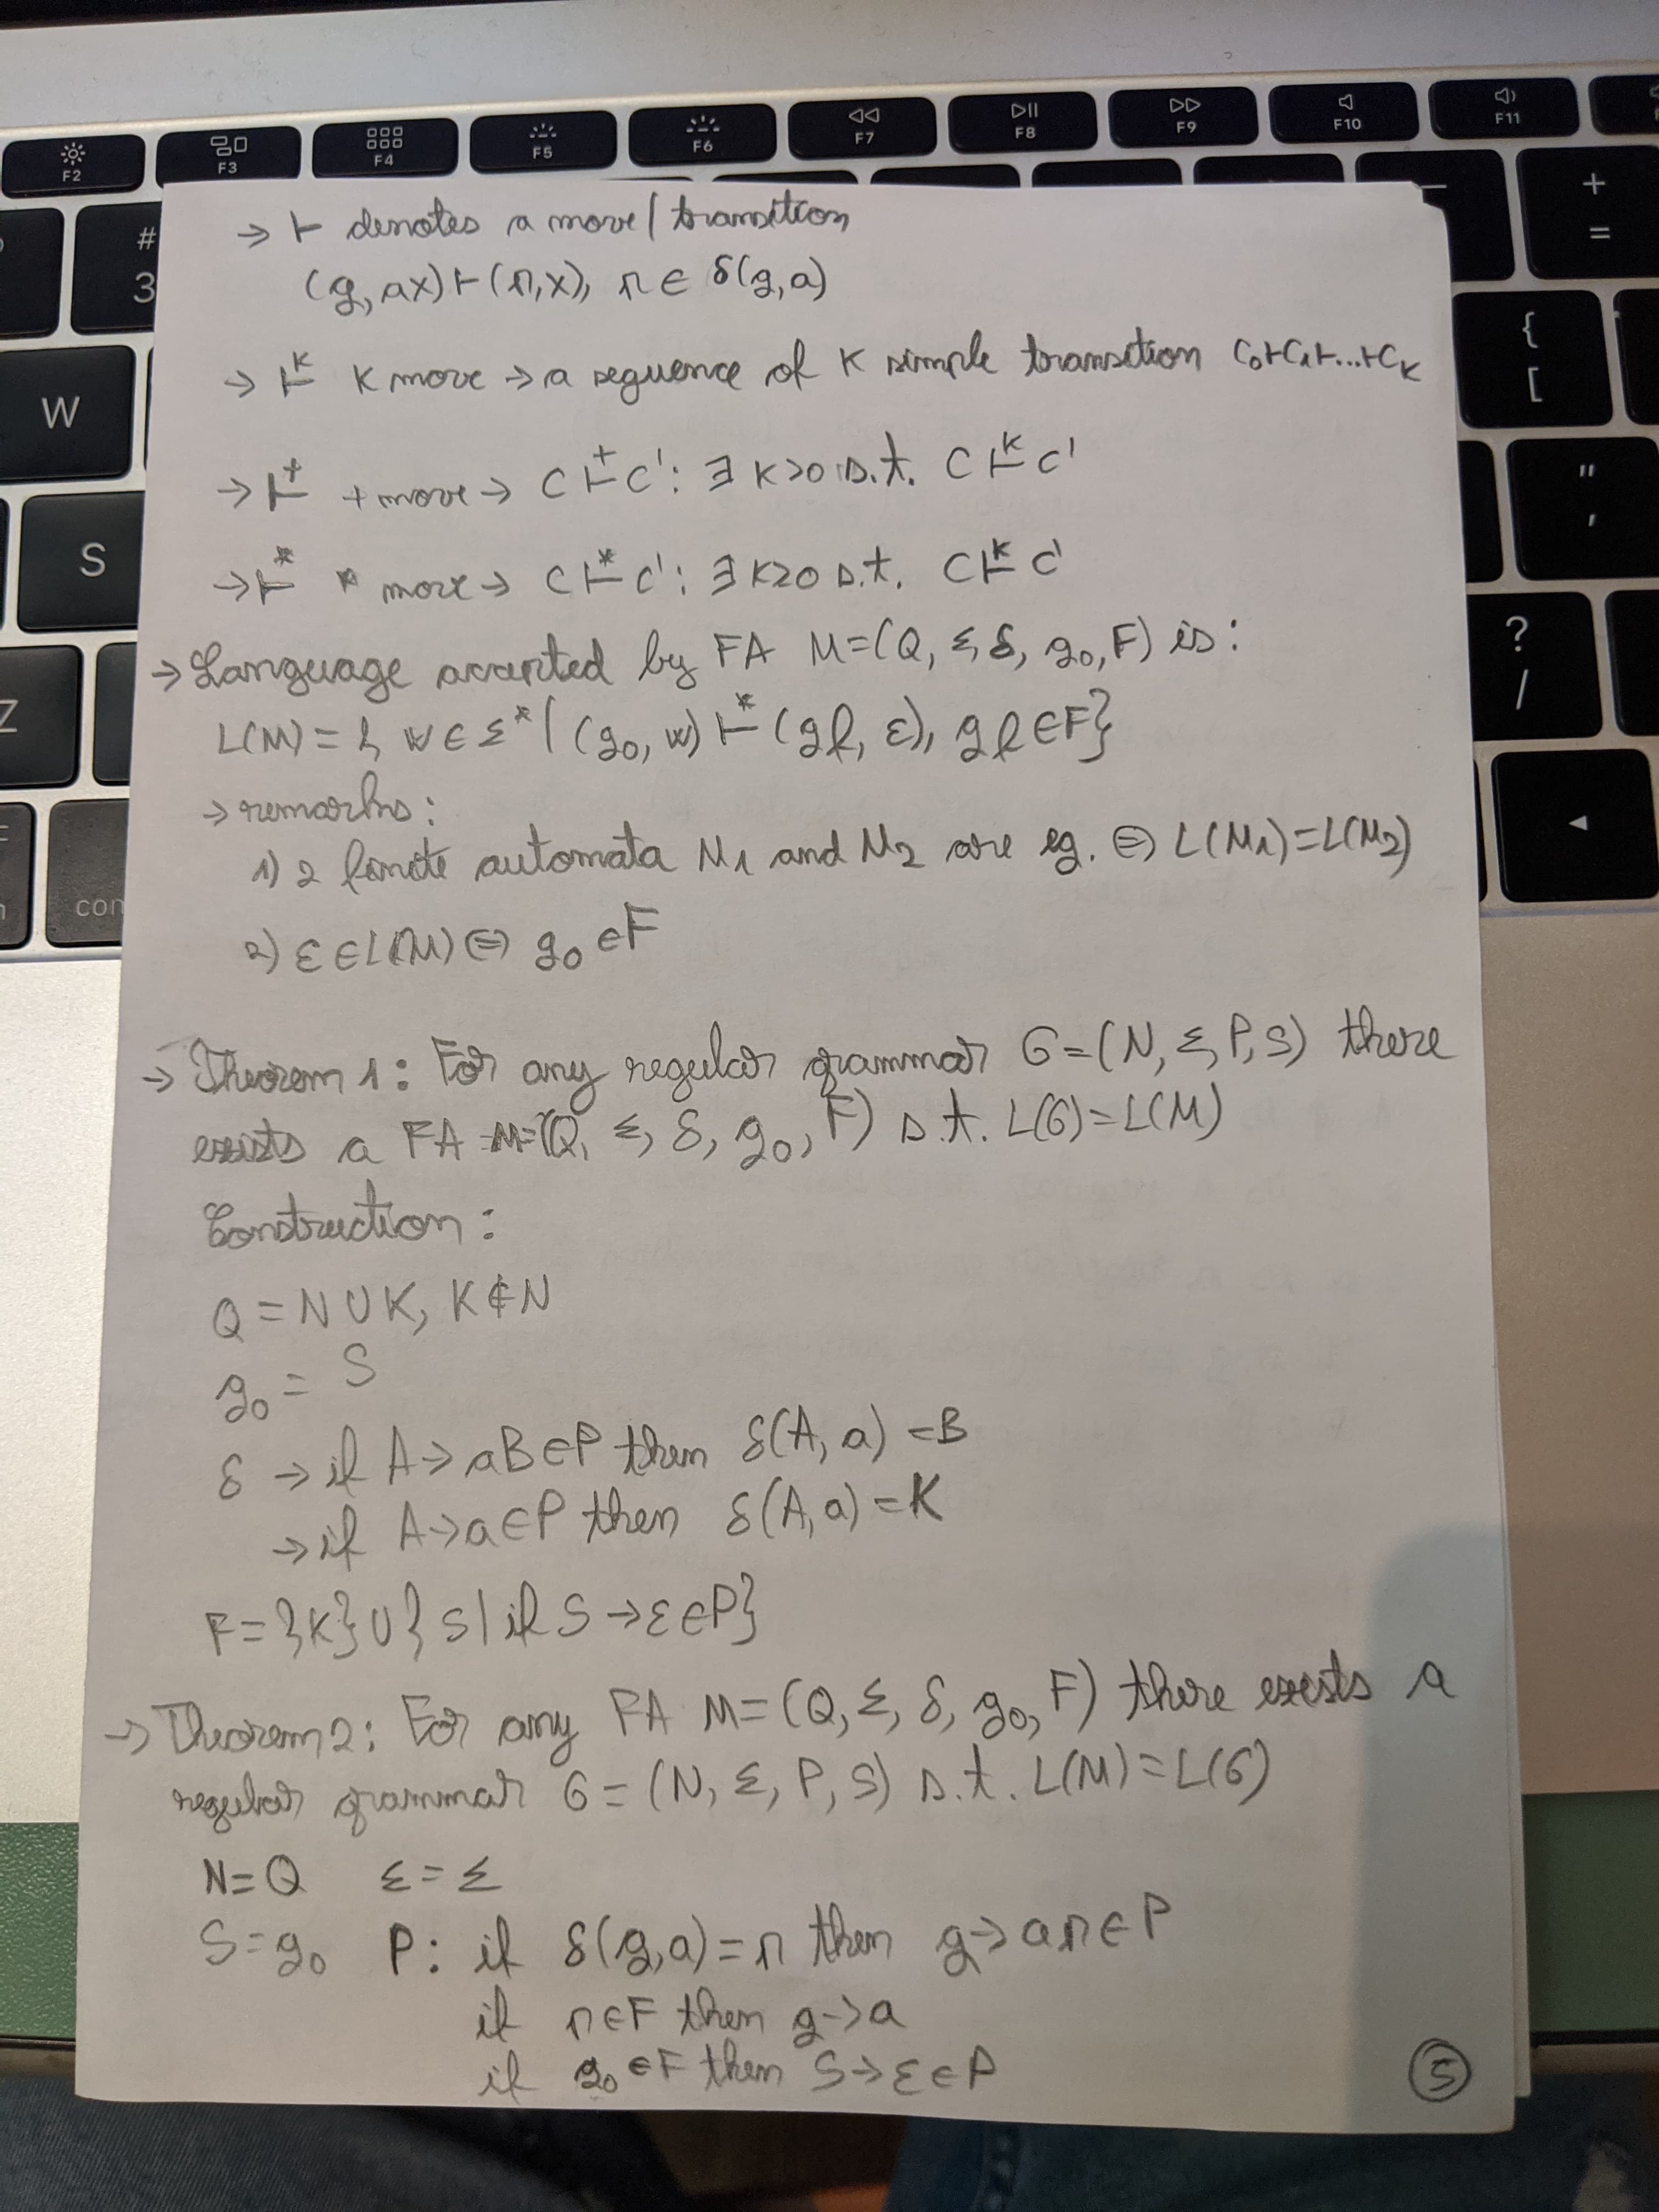 F2 F3 F4 F5 F6 F7 F8 F9 F10 F11
# 3
+ =
W
{ [
S
" '
Z
? /
con
→ ⊢ denotes a move/transition
(q, ax) ⊢ (r, x), r ∈ δ(q, a)
→ ⊢ᵏ K move → a sequence of K simple transition C₀⊢C₁⊢...⊢C_K
→ ⊢⁺ + move → C ⊢⁺ C': ∃ K>0 s.t. C ⊢ᵏ C'
→ ⊢* * move → C ⊢* C': ∃ K≥0 s.t. C ⊢ᵏ C'
→ Language accepted by FA M=(Q, Σ, δ, q₀, F) is:
L(M) = { w ∈ Σ* | (q₀, w) ⊢* (qf, ε), qf ∈ F}
→ remarks:
1) 2 finite automata M₁ and M₂ are eq. ⇔ L(M₁)=L(M₂)
2) ε ∈ L(M) ⇔ q₀ ∈ F
→ Theorem 1: For any regular grammar G=(N, Σ, P, S) there
exists a FA M=(Q, Σ, δ, q₀, F) s.t. L(G)=L(M)
Construction:
Q = N ∪ K, K ∉ N
q₀ = S
δ → if A → aB ∈ P then δ(A, a) = B
→ if A → a ∈ P then δ(A, a) = K
F = {K} ∪ {S | if S → ε ∈ P}
→ Theorem 2: For any FA M=(Q, Σ, δ, q₀, F) there exists a
regular grammar G = (N, Σ, P, S) s.t. L(M)=L(G)
N=Q Σ=Σ
S=q₀ P: if δ(q, a) = r then q → ar ∈ P
if r ∈ F then q → a
if q₀ ∈ F then S → ε ∈ P
5